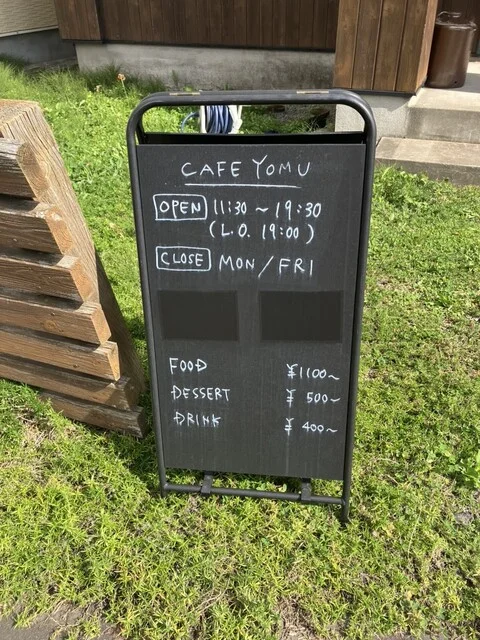 CAFE YOMU
OPEN 11:30 ~ 19:30
(L.O. 19:00)
CLOSE MON/FRI
FOOD ¥1100~
DESSERT ¥ 500~
DRINK ¥ 400~